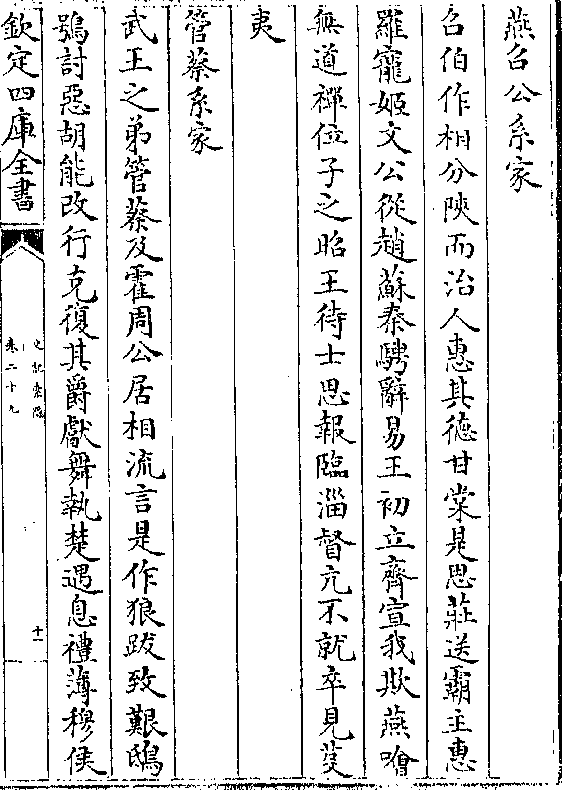 燕召公系家
召伯作相分陝而治人惠其德甘棠是思莊送霸主惠
羅寵姬文公從趙蘇秦騁辭易王初立齊宣我欺燕噲
無道禪位子之昭王待士思報臨淄督亢不就卒見芟
夷
管蔡系家
武王之弟管蔡及霍周公居相流言是作狼跋致艱鴟
鴞討惡胡能改行克復其爵獻舞執楚遇息禮薄穆侯
欽定四庫全書
史記索隱
卷二十九
十一